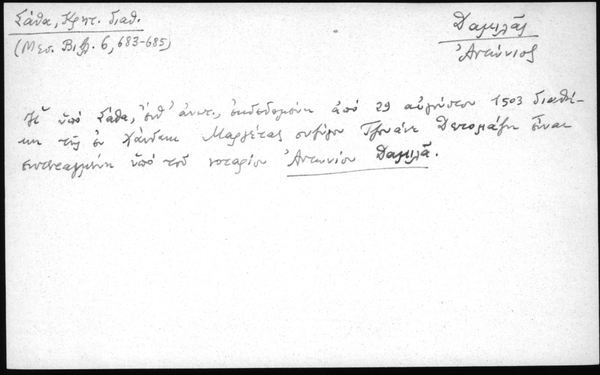 Σάθα, Κρητ. διαθ.
(Μεσ. Βιβλ. 6, 683-685)
Δαμιλᾶς
Ἀντώνιος
Ἡ ὑπὸ Σάθα, ἐνθ' ἀνωτ., ἐκδεδομένη ἀπὸ 29 αὐγούστου 1503 διαθή-
κη τῆς ἐν Χάνδακι Μαργέτας συζύγου Τζουάνε είναι
συντεταγμένη ὑπὸ τοῦ νοταρίου Ἀντωνίου Δαμιλᾶ.